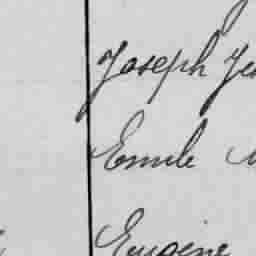 Joseph
Emile
Eugène